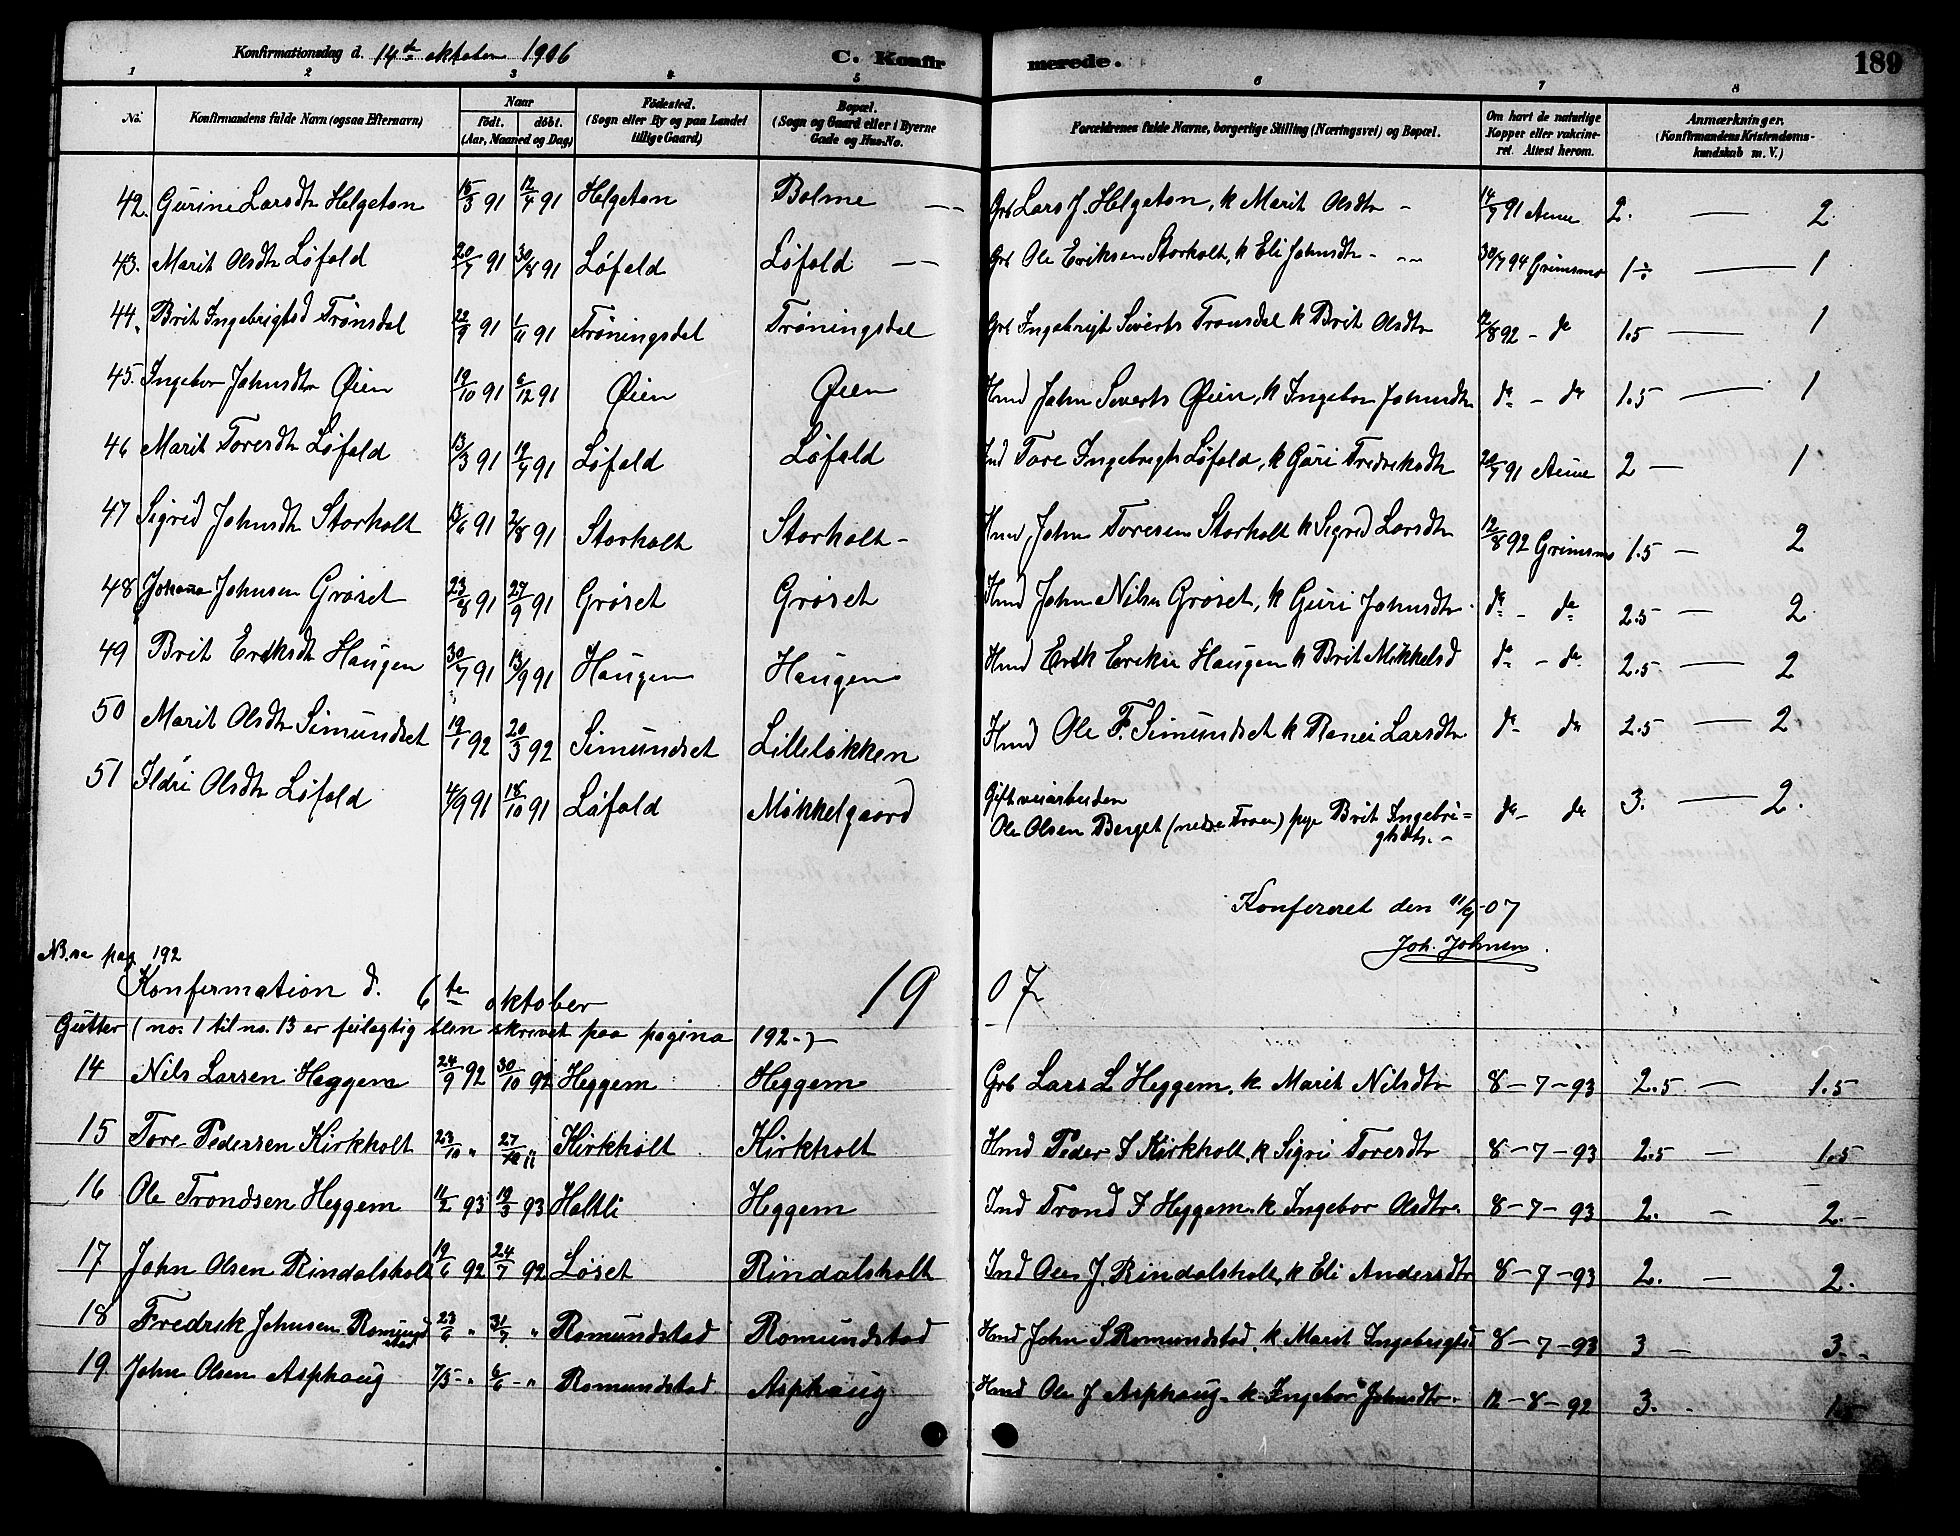 Konfirmationsdag d. 14de oktober 1906 C. Konfirmerede. 189
1 2 3 4 5 6 7 8
No. Konfirmandens fulde Navn (ogsaa Efternavn) Naar født. døbt. (Aar, Maaned og Dag) Fødested. (Sogn eller By og paa Landet tillige Gaard) Bopæl. (Sogn og Gaard eller i Byerne Gade og Hus-No. Forældrenes fulde Navne, borgerlige Stilling (Næringsvei) og Bopæl. Om havt de naturlige Kopper eller vakcineret. Attest herom. Anmærkninger. (Konfirmandens Kristendomskundskab m. V.)
42. Gurine Larsdtr Helgeton 15/3 91 12/4 91 Helgeton Bolme Grb Lars J. Helgeton, k Marit Olsdtr 14/7 91 Aune 2. — 2
43. Marit Olsdtr Løfald 20/7 91 30/8 91 Løfald Løfald Grb Ole Eriksen Storholt, k Eli Johnsdtr 30/7 94 Grimsmo 1÷ — 1
44. Brit Ingebrigtsd Trønsdal 22/9 91 1/11 91 Trøningsdal Trøningsdal Grb Ingebrigt Siverts Trønsdal k Brit Olsdtr 12/8 92 - do 1.5 — 1
45. Ingebor Johnsdtr Øien 19/10 91 6/12 91 Øien Øien Hmd John Siverts Øien, k Ingebor Johnsdtr do - do 1.5 — 1
46 Marit Toresdtr Løfald 13/3 91 19/4 91 Løfald Løfald Ind Tore Ingebrigts Løfald, k Guri Fredriksdtr 20/7 91 Aune 2 — 1
47 Sigrid Johnsdtr Storholt 14/6 91 2/8 91 Storholt Storholt - Hmd John Toresen Storholt k Sigrid Larsdtr 12/8 92 Grimsmo 1.5 — 2
48 Johanna Johnsen Grøset 23/8 91 27/9 91 Grøset Grøset Hmd John Nilsen Grøset, k Guri Johnsdtr. do - do 2.5 — 2
49 Brit Eriksdt Haugen 30/7 91 13/9 91 Haugen Haugen Hmd Erik Eriksen Haugen k Brit Mikkelsd do - do 2.5 — 2
50 Marit Olsdtr Simundset 19/1 92 20/3 92 Simundset Lilleløkken Hmd Ole F. Simundset k Ranei Larsdtr do do 2.5 — 2
51 Ildri Olsdtr Løfald 4/9 91 18/10 91 Løfald Mikkelgaard Gift veiarbeider
Ole Olsen Berget (nedre Troen) pige Brit Ingebrigtsdtr. - do - do 3. — 2.
Konfereret den 11/9-07
Joh. Johnsen.
NB. se pag 192
Konfirmation d. 6te oktober 1907
Gutter (no. 1 til no. 13 er feilagtig blen skrevet paa pagina 192.)
14 Nils Larsen Heggem 24/9 92 30/10 92 Heggem Heggem Grb Lars L Heggem, k Marit Nilsdtr 8-7-93 2.5 — 1.5
15 Tore Pedersen Kirkholt 23/10 " 27/10 " Kirkholt Kirkholt Hmd Peder I Kirkholt, k Sigri Toresdtr 8-7-93 2.5 — 1.5
16 Ole Trondsen Heggem 11/2 93 19/3 93 Holtli Heggem Ind Trond I Heggem, k Ingebor Olsdtr. 8-7-93 2. — 2.-
17 John Olsen Rindalsholt 19/6 92 24/7 92 Løset Rindalsholt Ind Ole J. Rindalsholt, k Eli Andersdtr 8-7-93 2. — 2.
18 Fredrik Johnsen Romundstad 23/6 " 31/7 " Romundstad Romundstad Hmd John S Romundstad, k Marit Ingebrigtsd 8-7-93 3 — 3.-
19 John Olsen Asphaug 7/5 - " 6/6 - " Romundstad Asphaug Hmd Ole J Asphaug, k Ingebor Johnsdtr. 12-8-92 3. - 1.5